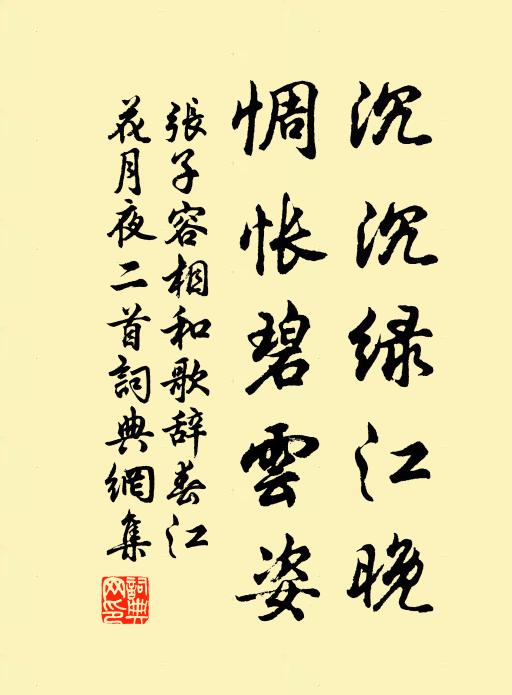 沉沉绿江晚
惆怅碧雲姿
張子容相和歌辞春江
花月夜二首詞典網集